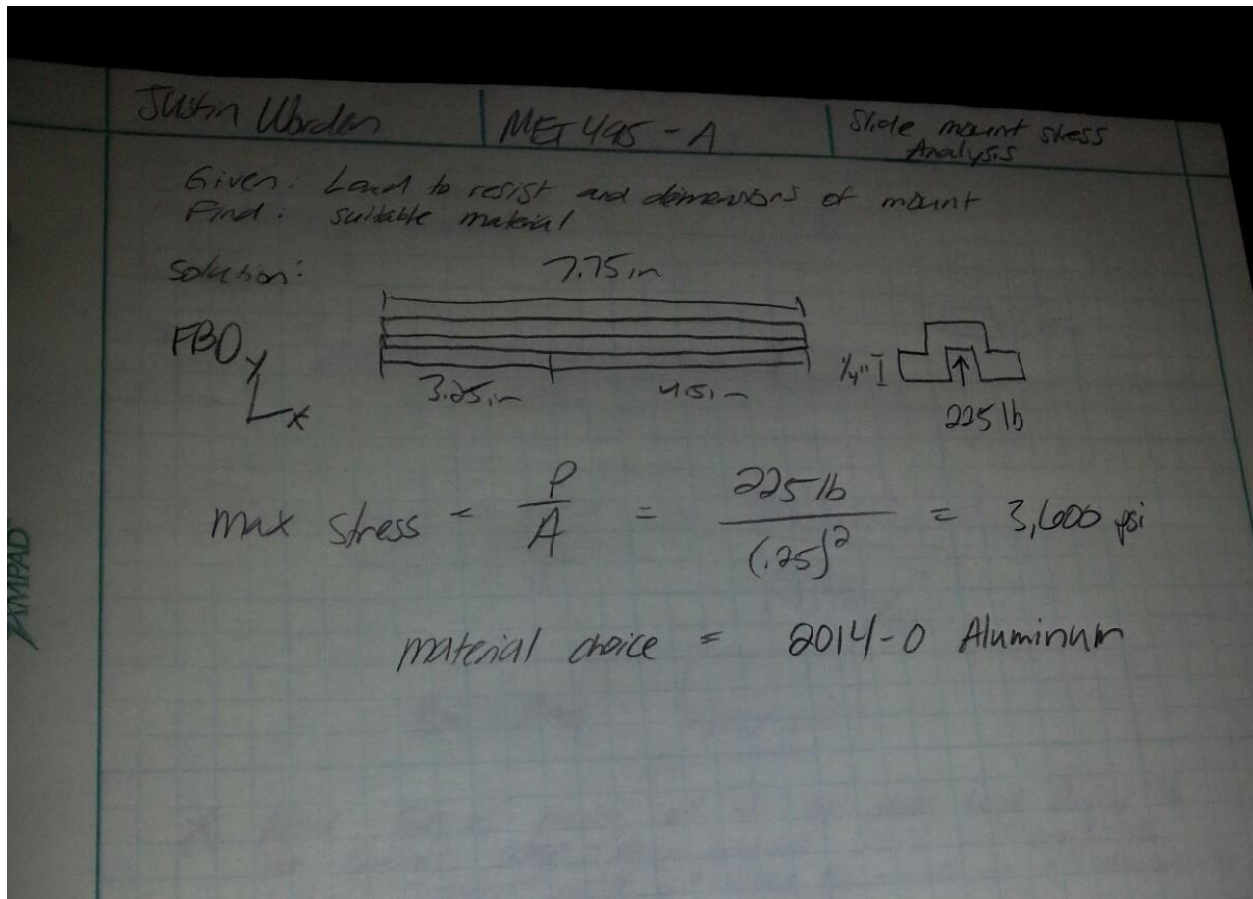 Justin Worden
MET 495-A
Slide mount stress
Analysis
Given: Load to resist and dimensions of mount
Find: suitable material
Solution:
7.75 in
FBD
y
x
3.25 in
4.5 in
1/4"
225 lb
max stress = P/A = 225 lb/(.25)^2 = 3,600 psi
material choice = 2014-0 Aluminum
AMPAD